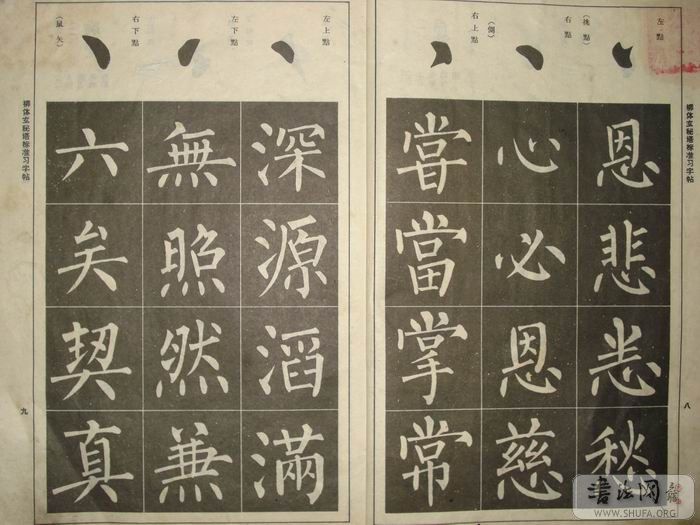 柳体玄秘塔标准习字帖
八
左點
(挑點)
恩悲愁
右點
(側)
心必恩慈
右上點
甞當掌常
左上點
深源滔滿
左下點
無照然兼
右下點
(鼠矢)
六矣契真
柳体玄秘塔标准习字帖
九
書法网
WWW.SHUFA.ORG